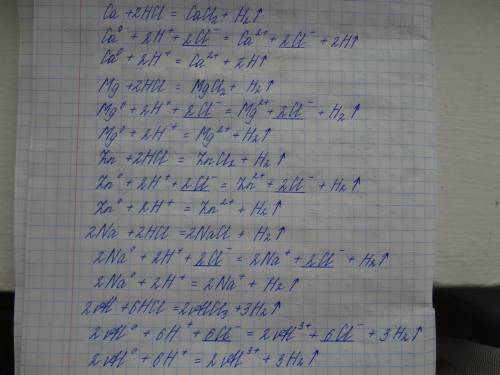 Ca + 2HCl = CaCl₂ + H₂↑
Ca⁰ + 2H⁺ + 2Cl⁻ = Ca²⁺ + 2Cl⁻ + 2H↑
Ca⁰ + 2H⁺ = Ca²⁺ + 2H↑
Mg + 2HCl = MgCl₂ + H₂↑
Mg⁰ + 2H⁺ + 2Cl⁻ = Mg²⁺ + 2Cl⁻ + H₂↑
Mg⁰ + 2H⁺ = Mg²⁺ + H₂↑
Zn + 2HCl = ZnCl₂ + H₂↑
Zn⁰ + 2H⁺ + 2Cl⁻ = Zn²⁺ + 2Cl⁻ + H₂↑
Zn⁰ + 2H⁺ = Zn²⁺ + H₂↑
2Na + 2HCl = 2NaCl + H₂↑
2Na⁰ + 2H⁺ + 2Cl⁻ = 2Na⁺ + 2Cl⁻ + H₂↑
2Na⁰ + 2H⁺ = 2Na⁺ + H₂↑
2Al + 6HCl = 2AlCl₃ + 3H₂↑
2Al⁰ + 6H⁺ + 6Cl⁻ = 2Al³⁺ + 6Cl⁻ + 3H₂↑
2Al⁰ + 6H⁺ = 2Al³⁺ + 3H₂↑